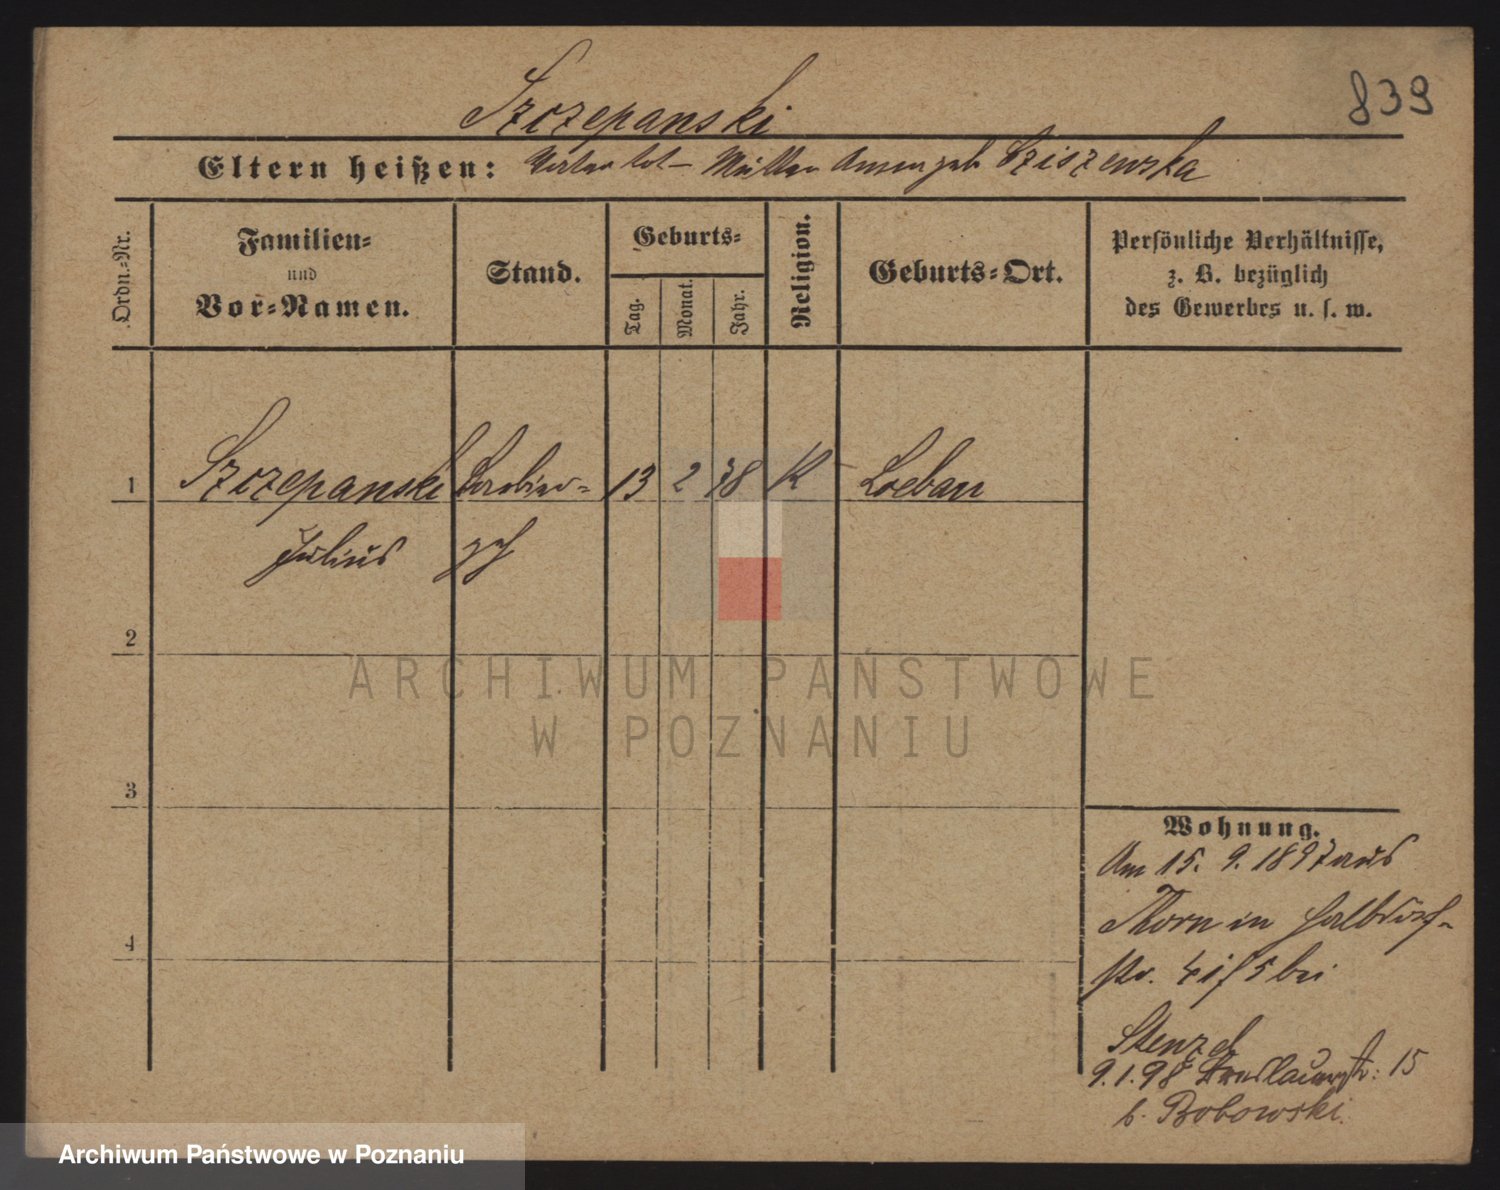 839
Szczepanski
Eltern heißen: Vater tot - Mutter Anna geb Sziszewska
Ordn.-Nr.
Familien-
und
Vor-Namen.
Stand.
Geburts-
Tag.
Monat.
Jahr.
Religion.
Geburts-Ort.
Persönliche Verhältnisse,
z. B. bezüglich
des Gewerbes u. s. w.
1 Szczepanski Barbier- 13 2 78 K Loebau
Julius geh
2
3
4
Wohnung.
Am 15. 9. 1897 aus
Thorn in Halbdorf-
str. 4 bei
Stenzel
9.1.98 Breslauerstr: 15
b. Bobowski.
ARCHIWUM PAŃSTWOWE
W POZNANIU
Archiwum Państwowe w Poznaniu